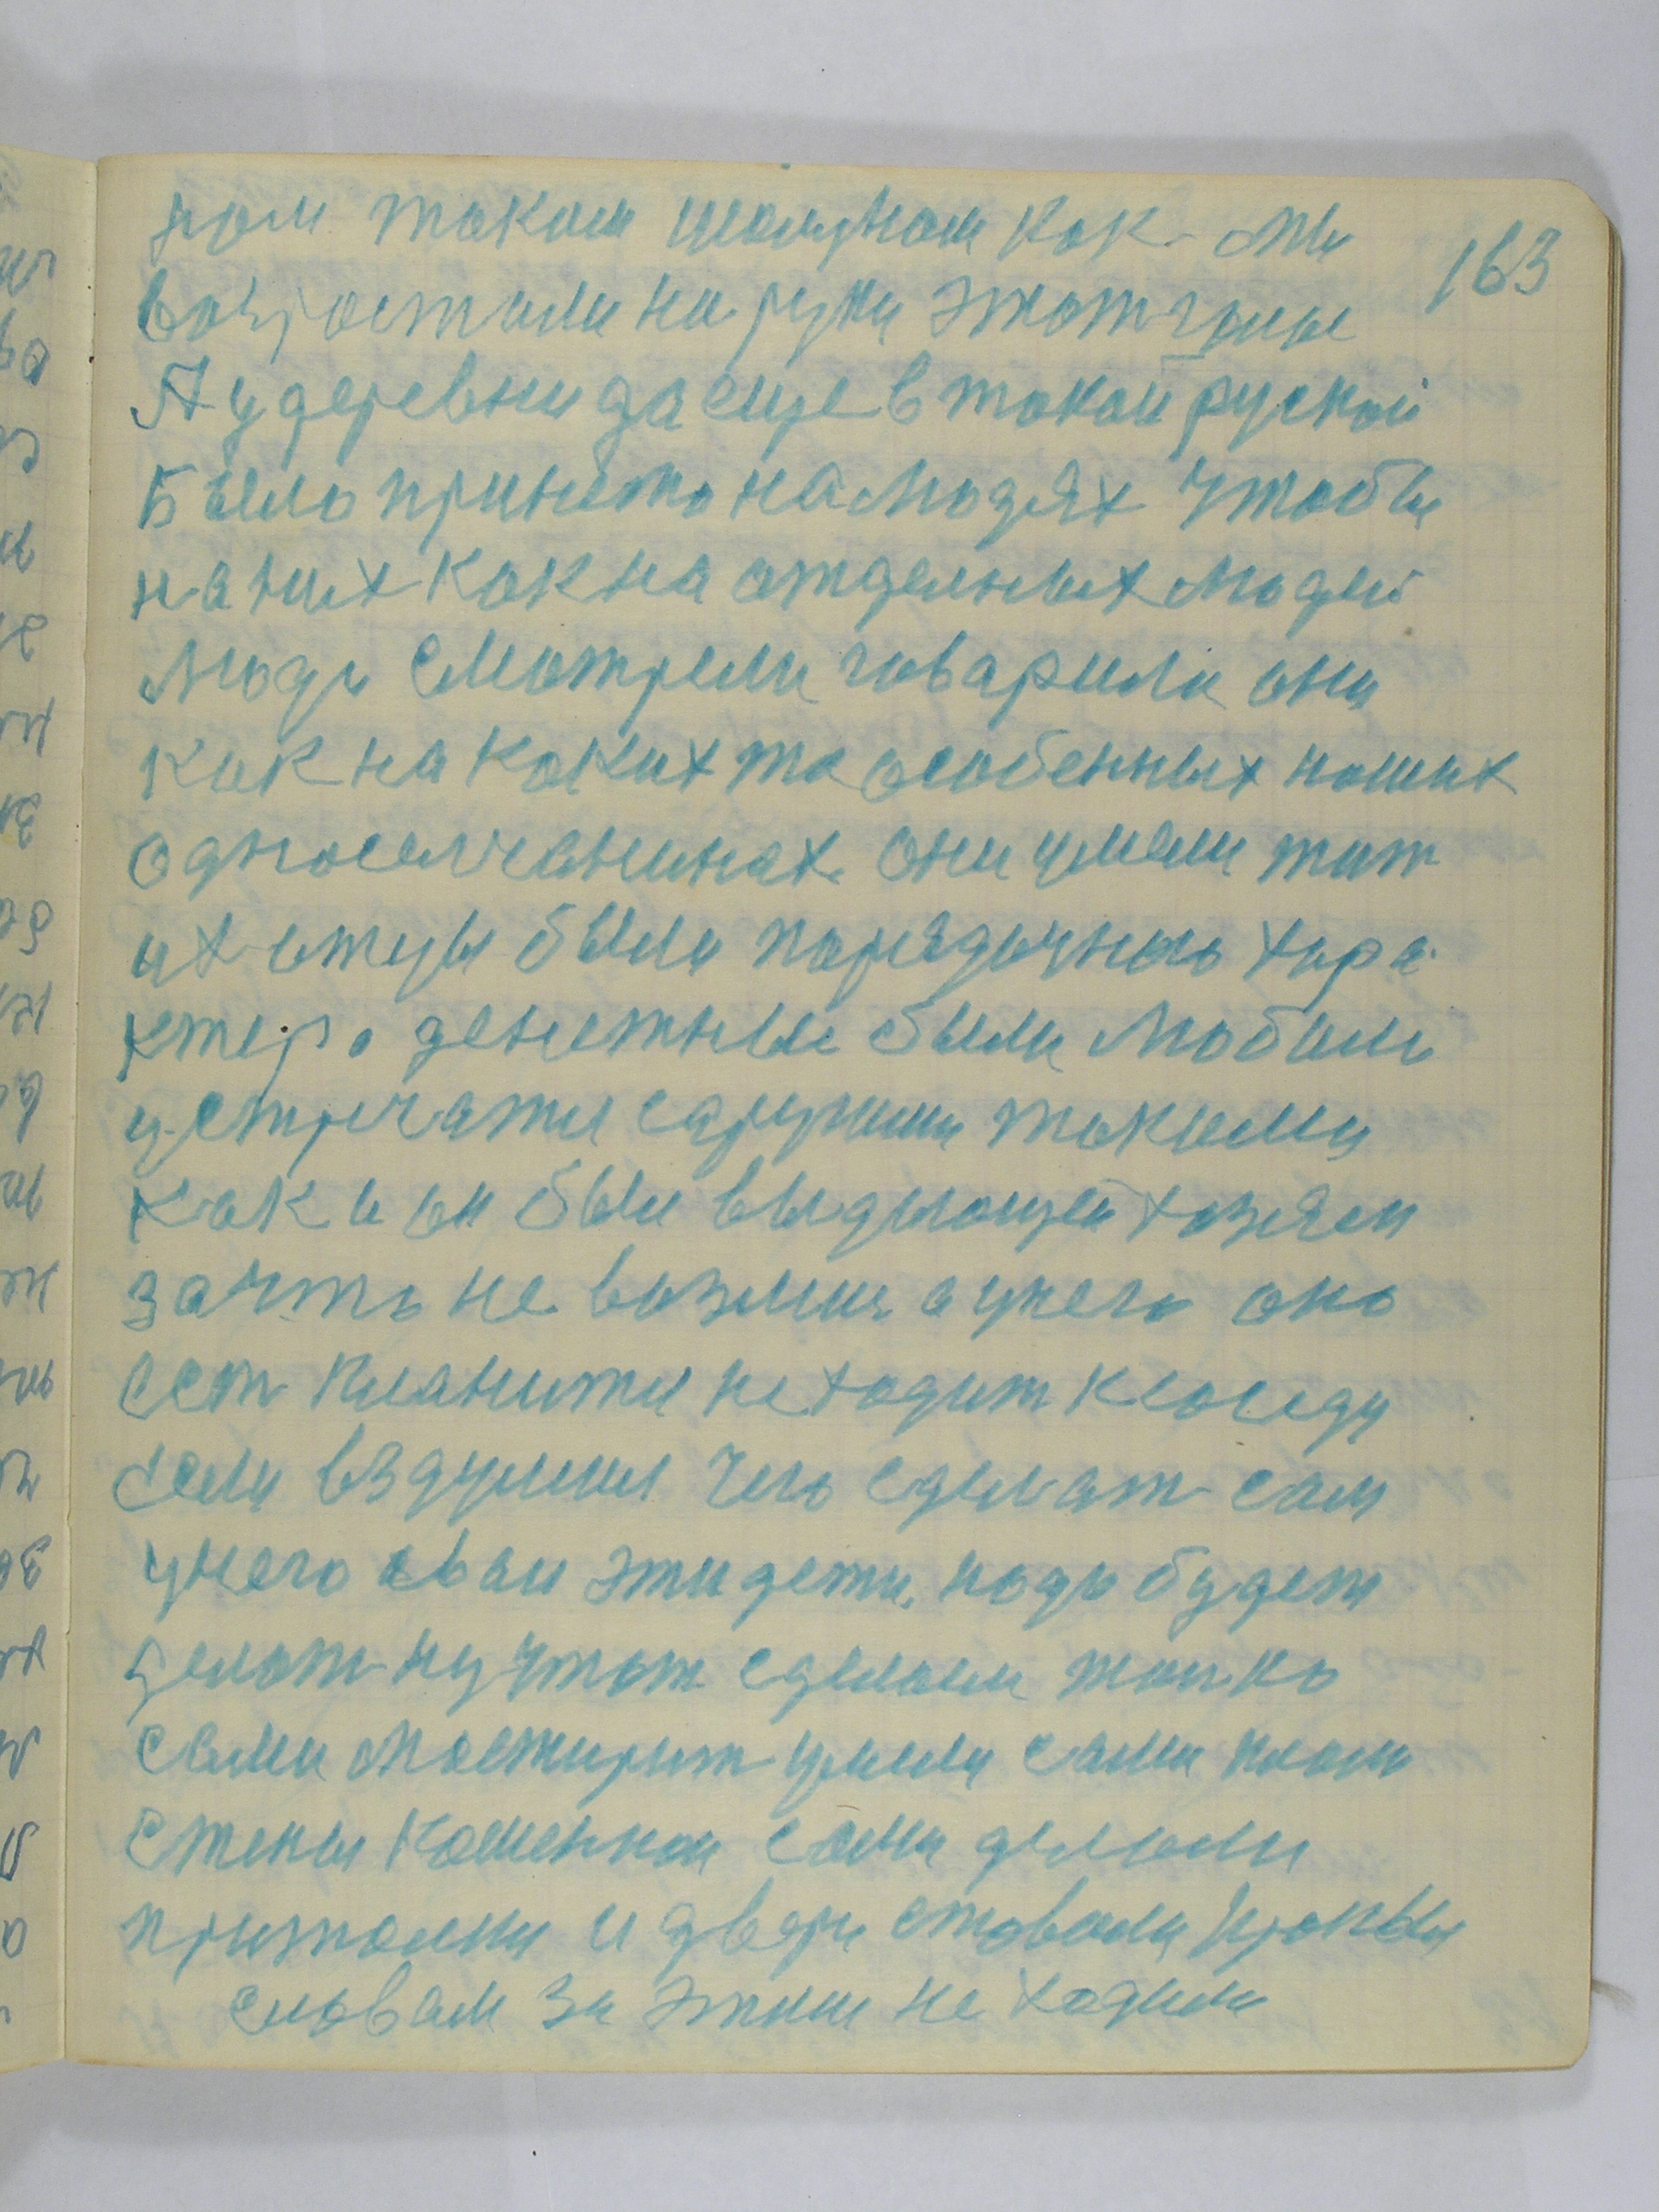 ром таком шалуном как мы
163
возростили на руки этот
А у деревни да еще в такой руской
Было принято на людях чтобы
на них как на отделных людей
люди смотрели говарили они
как на каких то особенных наших
односелчанинах они умели жит
их отцы были порядочного хара
ктера денежные были любили
устречатся с другими такими
как и он был выдающей хозяен
зачто не возмис а у него оно
ест кланится не ходит к соседу
если вздумаил чего сделат сам
у него сваи эти дети, нада будет
делат ну чтож сделаем толко
сами мастирит умели сами клали
стены каменнои сами делали
притолки и двери ставали
словам за этим не ходили